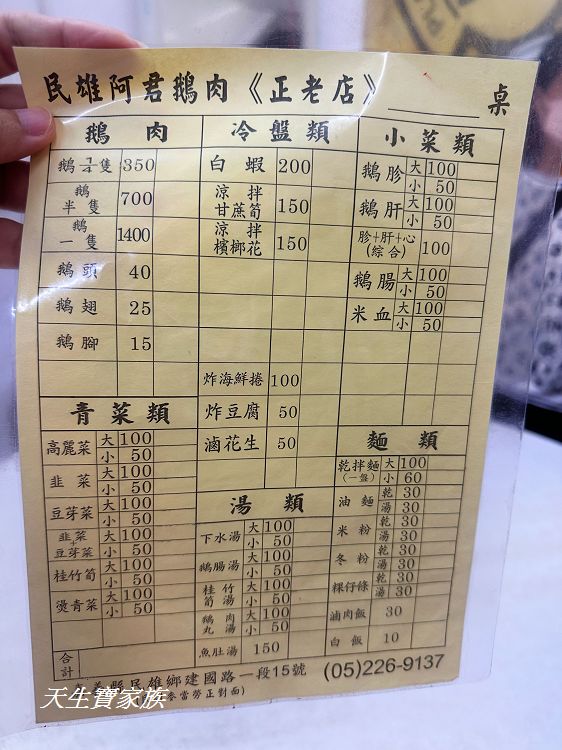 民雄阿君鵝肉《正老店》 桌
鵝肉
鵝 ¼隻 350
鵝半隻 700
鵝一隻 1400
鵝頭 40
鵝翅 25
鵝腳 15
青菜類
高麗菜 大 100 小 50
韭菜 大 100 小 50
豆芽菜 大 100 小 50
韭菜+豆芽菜 大 100 小 50
桂竹筍 大 100 小 50
燙青菜 大 100 小 50
合計
冷盤類
白蝦 200
涼拌甘蔗筍 150
涼拌檳榔花 150
炸海鮮捲 100
炸豆腐 50
滷花生 50
湯類
下水湯 大 100 小 50
鵝腸湯 大 100 小 50
桂竹筍湯 大 100 小 50
鵝肉丸湯 大 100 小 50
魚肚湯 150
小菜類
鵝胗 大 100 小 50
鵝肝 大 100 小 50
胗+肝+心(綜合) 100
鵝腸 大 100 小 50
米血 大 100 小 50
麵類
乾拌麵(一盤) 大 100 小 60
油麵 乾 30 湯 30
米粉 乾 30 湯 30
冬粉 乾 30 湯 30
粿仔條 乾 30 湯 30
滷肉飯 30
白飯 10
義縣民雄鄉建國路一段15號 (05)226-9137
麥當勞正對面)
天生寶家族